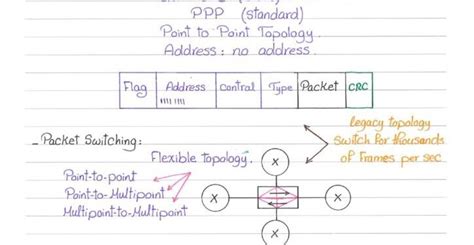 PPP (standard)
Point to Point Topology.
Address: no address.
Flag Address Control Type Packet CRC
11111111
legacy topology
switch for thousands
of frames per sec
- Packet Switching:
Flexible topology.
Point-to-point
Point-to-Multipoint
Multipoint-to-Multipoint
X
X
X
X